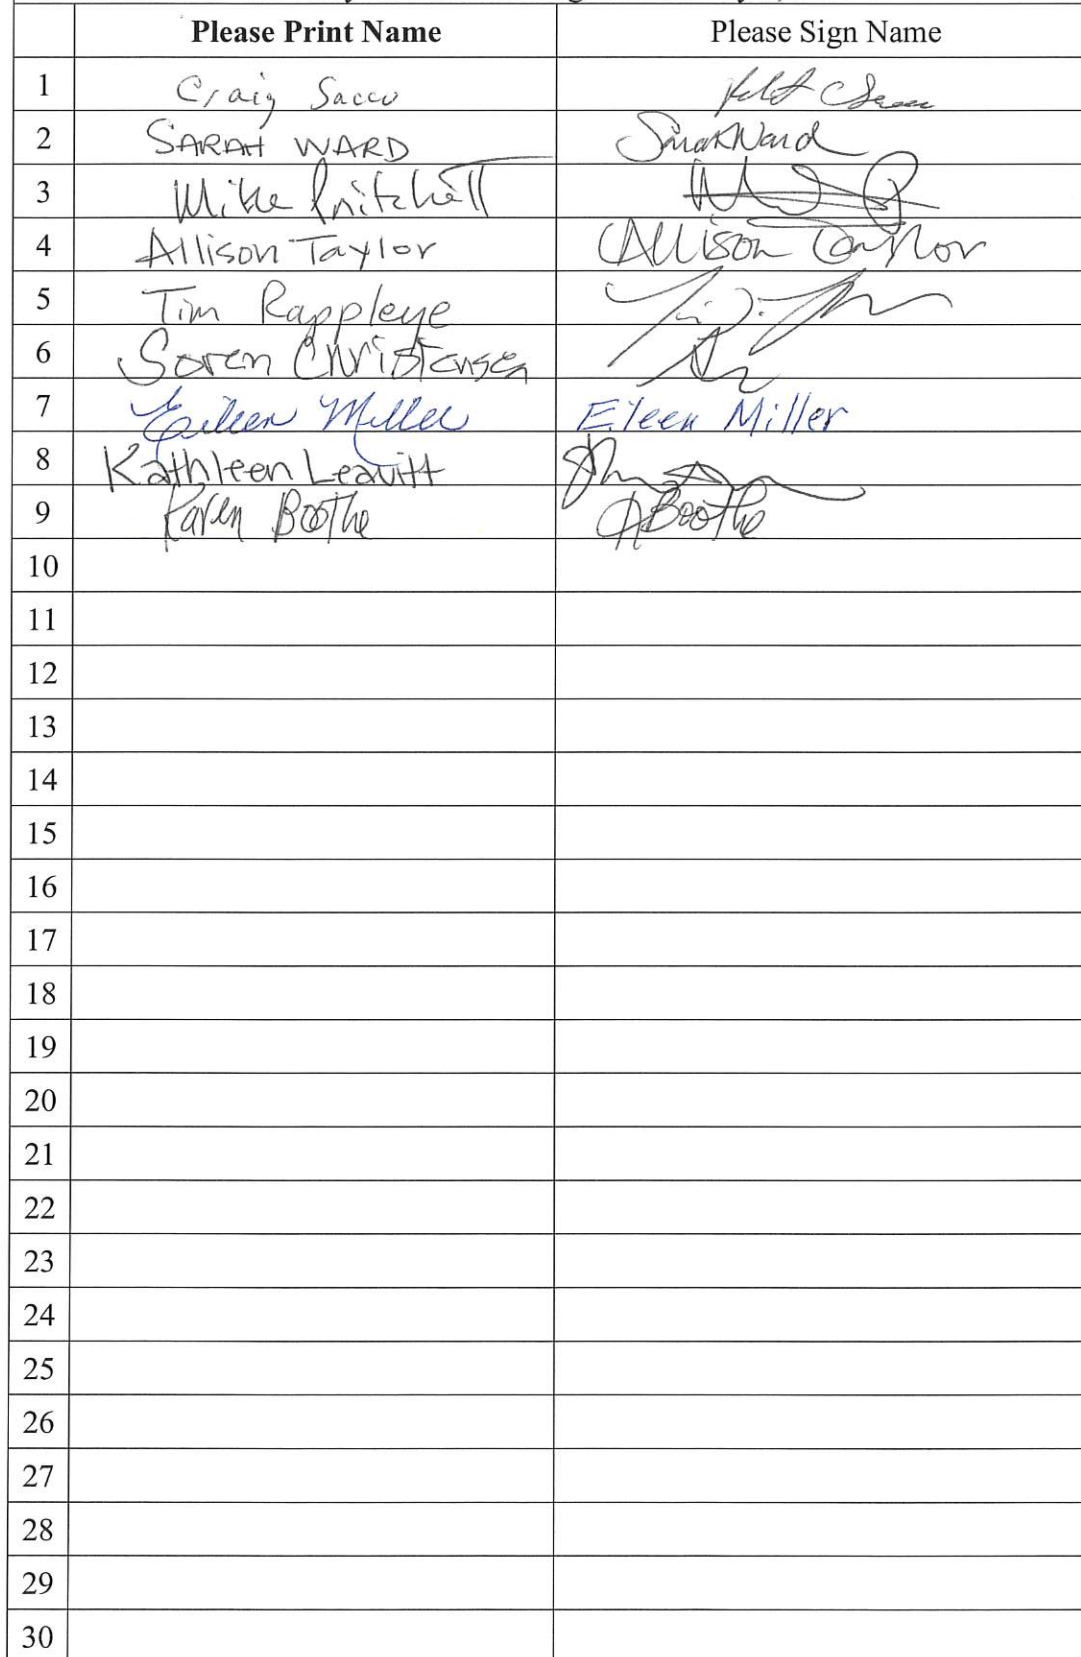 Please Print Name Please Sign Name
1 Craig Sacco
2 SARAH WARD Sarah Ward
3 Mike Pritchett
4 Allison Taylor Allison Taylor
5 Tim Rappleye
6 Soren Christensen
7 Eileen Miller Eileen Miller
8 Kathleen Leavitt
9 Karen Boothe Boothe
10
11
12
13
14
15
16
17
18
19
20
21
22
23
24
25
26
27
28
29
30